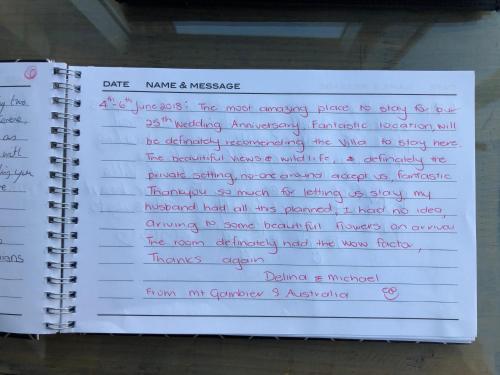 DATE NAME & MESSAGE
4th-6th June 2018: The most amazing place to stay for our
25th Wedding Anniversary. Fantastic location, will
be definately recomending the Villa to stay here.
The beautiful views & wildlife, & definately the
private setting, no-one around accept us, fantastic
Thankyou so much for letting us stay, my
husband had all this planned, I had no idea,
arriving to some beautiful flowers on arrival
The room definately had the wow factor,
Thanks again
Delina & michael
From mt Gambier S Australia